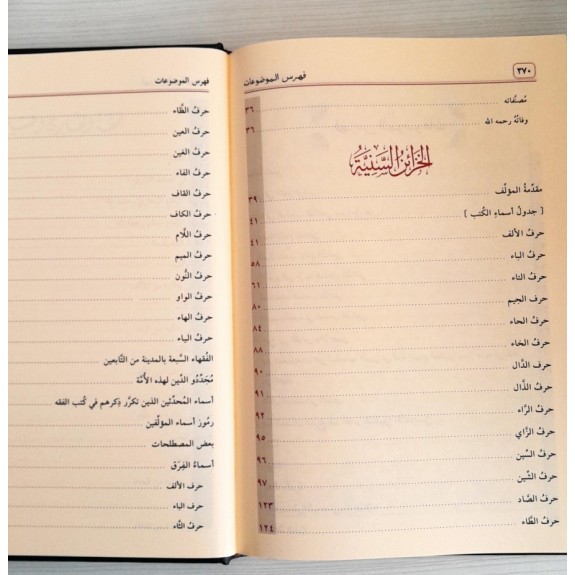 ٣٧٠ فهرس الموضوعات
مُصنَّفاته ٣٦
وفاتهُ رحمه الله ٣٦
الخزائن السَّنيَّة
مقدمةُ المؤلِّف ٣٩
[ جدولُ أسماءِ الكُتب ] ٤١
حرفُ الألف ٤١
حرفُ الباء ٥٨
حرفُ التاء ٦١
حرف الجيم ٨٠
حرفُ الحاء ٨٤
حرفُ الخاء ٨٨
حرف الدَّال ٩٠
حرفُ الذَّال ٩١
حرفُ الرَّاء ٩٢
حرفُ الزَّاي ٩٥
حرفُ السِّين ٩٦
حرفُ الشِّين ٩٧
حرفُ الصَّاد ١٢٣
حرفُ الطَّاء ١٢٤
فهرس الموضوعات
حرفُ الظَّاء
حرفُ العين
حرفُ الغين
حرفُ الفاء
حرفُ القاف
حرفُ الكاف
حرفُ اللَّام
حرفُ الميم
حرفُ النُّون
حرفُ الواو
حرفُ الهاء
حرفُ الياء
الفُقهاء السَّبعة بالمدينة من التَّابعين
مُجَدِّدُو الدِّين لهذه الأُمَّة
أسماء المُحدِّثين الذين تكرَّر ذِكرهم في كُتب الفقه
رموز أسماء المؤلِّفين
بعض المصطلحات
أسماءُ الفِرَق
حرف الألف
حرفُ الباء
حرفُ الثَّاء